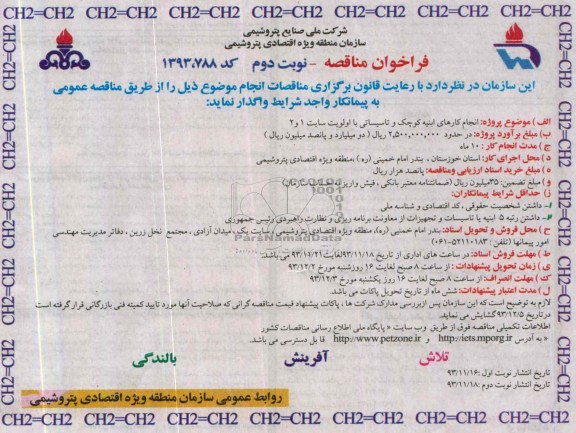 CH2=CH2 CH2=CH2 CH2=CH2 CH2=CH2 CH2=CH2 CH2=CH2 CH2=CH2
شرکت ملی صنایع پتروشیمی
سازمان منطقه ویژه اقتصادی پتروشیمی
فراخوان مناقصه - نوبت دوم کد ۱۳۹۳،۷۸۸
این سازمان در نظردارد با رعایت قانون برگزاری مناقصات انجام موضوع ذیل را از طریق مناقصه عمومی
به پیمانکار واجد شرایط واگذار نماید:
الف) موضوع پروژه: انجام کارهای ابنیه کوچک و تاسیساتی با اولویت سایت ۱ و۲
ب) مبلغ برآورد پروژه: در حدود ۲,۵۰۰,۰۰۰,۰۰۰ ریال ( دو میلیارد و پانصد میلیون ریال )
ج) مدت انجام کار: ۱۰ ماه
د) محل اجرای کار: استان خوزستان ، بندر امام خمینی (ره) ،منطقه ویژه اقتصادی پتروشیمی
ه) مبلغ خرید اسناد ارزیابی ومناقصه: پانصد هزار ریال
و) مبلغ تضمین: ۳۵میلیون ریال (ضمانتنامه معتبر بانکی ، فیش واریز
ز) حداقل شرایط پیمانکاران:
-داشتن شخصیت حقوقی ، کد اقتصادی و شناسه ملی
#- داشتن رتبه ۵ ابنیه یا تاسیسات و تجهیزات از معاونت برنامه ریزی و نظارت راهبردی رئیس جمهوری
ح) محل فروش و تحویل اسناد: بندر امام خمینی (ره)، منطقه ویژه اقتصادی پتروشیمی ، سایت یک، میدان آزادی ، مجتمع نخل زرین ، دفاتر مدیریت مهندسی
امور پیمانها (تلفن : ۵۲۱۱۰۱۸۳-۰۶۱)
ط) مهلت فروش اسناد: در ساعت های اداری از تاریخ ۹۳/۱۱/۱۸لغایت ۹۳/۱۱/۲۱ می باشد.
ی) زمان تحویل پیشنهادات : از ساعت ۸ صبح لغایت ۱۶ روزشنبه مورخ ۹۳/۱۲/۲
ک) مهلت انصراف: از ساعت ۸ صبح لغایت ۱۶ روز یکشنبه مورخ ۹۳/۱۲/۳
ل) مدت اعتبار پیشنهادات: شش ماه از تاریخ تحویل پاکات می باشد.
لازم به توضیح است که این سازمان پس ازبررسی مدارک شرکت ها ، پاکات پیشنهاد قیمت مناقصه گرانی که صلاحیت آنها مورد تایید کمیته فنی بازرگانی قرار گرفته است
درتاریخ ۹۳/۱۲/۵گشایش می نماید.
اطلاعات تکمیلی مناقصه فوق از طریق وب سایت « پایگاه ملی اطلاع رسانی مناقصات کشور
» به آدرس http://iets.mporg.ir و http://www.petzone.ir قابل دسترسی می باشد.
تلاش آفرینش بالندگی
تاریخ انتشار نوبت اول :۹۳/۱۱/۱۶
تاریخ انتشار نوبت دوم :۹۳/۱۱/۱۸
روابط عمومی سازمان منطقه ویژه اقتصادی پتروشیمی
ParsNamadData
CH2=CH2 CH2=CH2 CH2=CH2 CH2=CH2 CH2=CH2 CH2=CH2 CH2=CH2